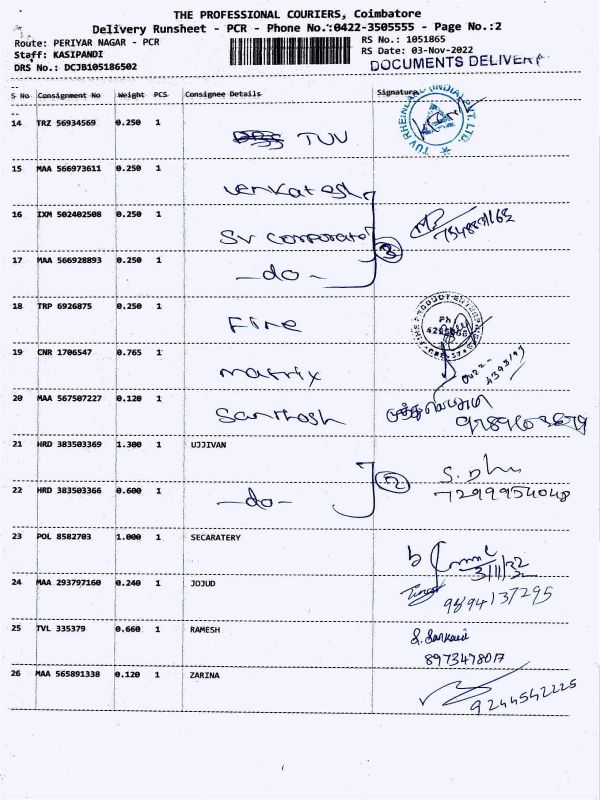 THE PROFESSIONAL COURIERS, Coimbatore
Delivery Runsheet - PCR - Phone No.:0422-3505555 - Page No.:2
Route: PERIYAR NAGAR - PCR
RS No.: 1051865
Staff: KASIPANDI
RS Date: 03-Nov-2022
DRS No.: DCJB105186502
DOCUMENTS DELIVERY
S No Consignment No Weight PCS Consignee Details Signature
14 TRZ 56934569 0.250 1 TUV
TUV RHEINLAND (INDIA) PVT. LTD.
15 MAA 566973611 0.250 1 Venkatesh
16 IXM 502402508 0.250 1 SV Corporate
3
17 MAA 566928893 0.250 1 -do-
18 TRP 6926875 0.250 1 Fire
FIRE PRODUCT ENTERPRISES
Ph
19 CNR 1706547 0.765 1 matrix
0422-
4393199
20 MAA 567507227 0.120 1 Santhosh
21 HRD 383503369 1.300 1 UJJIVAN
2
22 HRD 383503366 0.600 1 -do- 7299954048
23 POL 8582703 1.000 1 SECARATERY
24 MAA 293797160 0.240 1 JOJUD 9894137295
25 TVL 335379 0.660 1 RAMESH
8973478017
26 MAA 565891338 0.120 1 ZARINA 9244542225